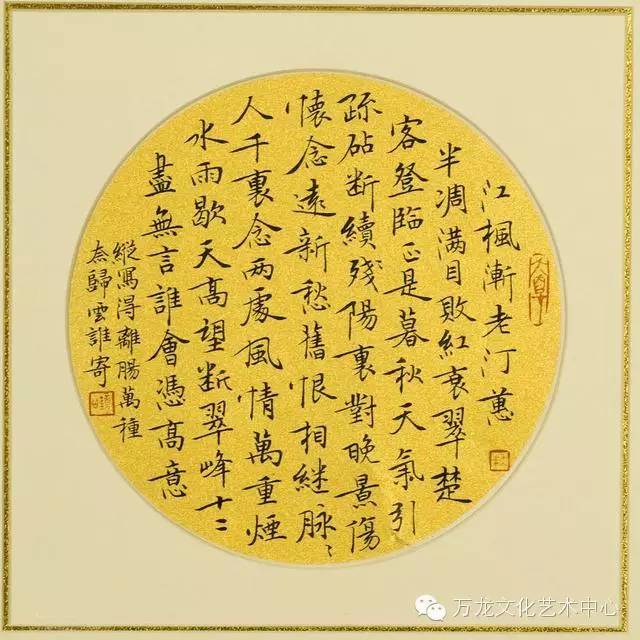 江楓漸老汀蕙
半凋满目敗紅衰翠楚
客登臨正是暮秋天氣引
疏砧断續殘陽裏對晚景傷
懷念遠新愁舊恨相継脉〻
人千裏念两處風情萬重煙
水雨歇天高望断翠峰十二
盡無言誰會憑高意
縱寫得離腸萬種
奈歸雲誰寄
万龙文化艺术中心